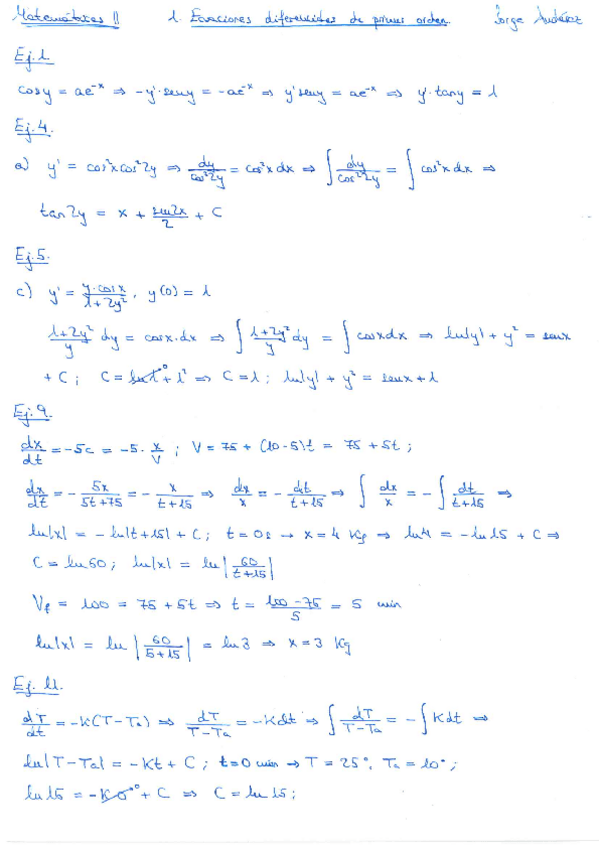 Matemáticas II 1. Ecuaciones diferenciales de primer orden. Jorge
Ej. 1.
cos y = ae^-x ⇒ -y'·sen y = -ae^-x ⇒ y' sen y = ae^-x ⇒ y'·tan y = 1
Ej. 4.
a) y' = cos²x cos²2y ⇒ dy/cos²2y = cos²x dx ⇒ ∫ dy/cos²2y = ∫ cos²x dx ⇒
tan 2y = x + sen2x/2 + C
Ej. 5.
c) y' = y·cos x/1+2y², y(0) = 1
1+2y²/y dy = cos x·dx ⇒ ∫ 1+2y²/y dy = ∫ cos x dx ⇒ ln|y| + y² = sen x
+ C; C = ln 1⁰ + 1² ⇒ C = 1; ln|y| + y² = sen x + 1
Ej. 9.
dx/dt = -5c = -5· x/V ; V = 75 + (10-5)t = 75 + 5t;
dx/dt = - 5x/5t+75 = - x/t+15 ⇒ dx/x = - dt/t+15 ⇒ ∫ dx/x = - ∫ dt/t+15 ⇒
ln|x| = - ln|t+15| + C; t = 0 s → x = 4 Kg ⇒ ln 4 = - ln 15 + C ⇒
C = ln 60; ln|x| = ln| 60/t+15 |
Vf = 100 = 75 + 5t ⇒ t = 100-75/5 = 5 min
ln|x| = ln | 60/5+15 | = ln 3 ⇒ x = 3 Kg
Ej. 11.
dT/dt = -K(T-Ta) ⇒ dT/T-Ta = -Kdt ⇒ ∫ dT/T-Ta = - ∫ Kdt ⇒
ln|T-Ta| = -Kt + C; t=0 min → T = 25°, Ta = 10°;
ln 15 = -K·0⁰ + C ⇒ C = ln 15;